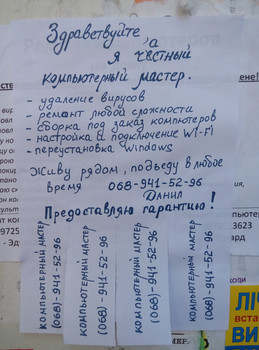 Здравствуйте, а
я честный
компьютерный мастер.
- удаление вирусов
- ремонт любой сложности
- сборка под заказ компьютеров
- настройка и подключение WI-FI
- переустановка Windows
Живу рядом, подъеду в любое
время 068-941-52-96
Данил
Предоставляю гарантию!
КОМПЬЮТЕРНЫЙ МАСТЕР
(068)-941-52-96
КОМПЬЮТЕРНЫЙ МАСТЕР
(068)-941-52-96
КОМПЬЮТЕРНЫЙ МАСТЕР
(068)-941-52-96
КОМПЬЮТЕРНЫЙ МАСТЕР
(068)-941-52-96
ене!
3623
9725
ЛІЧ
ВИ